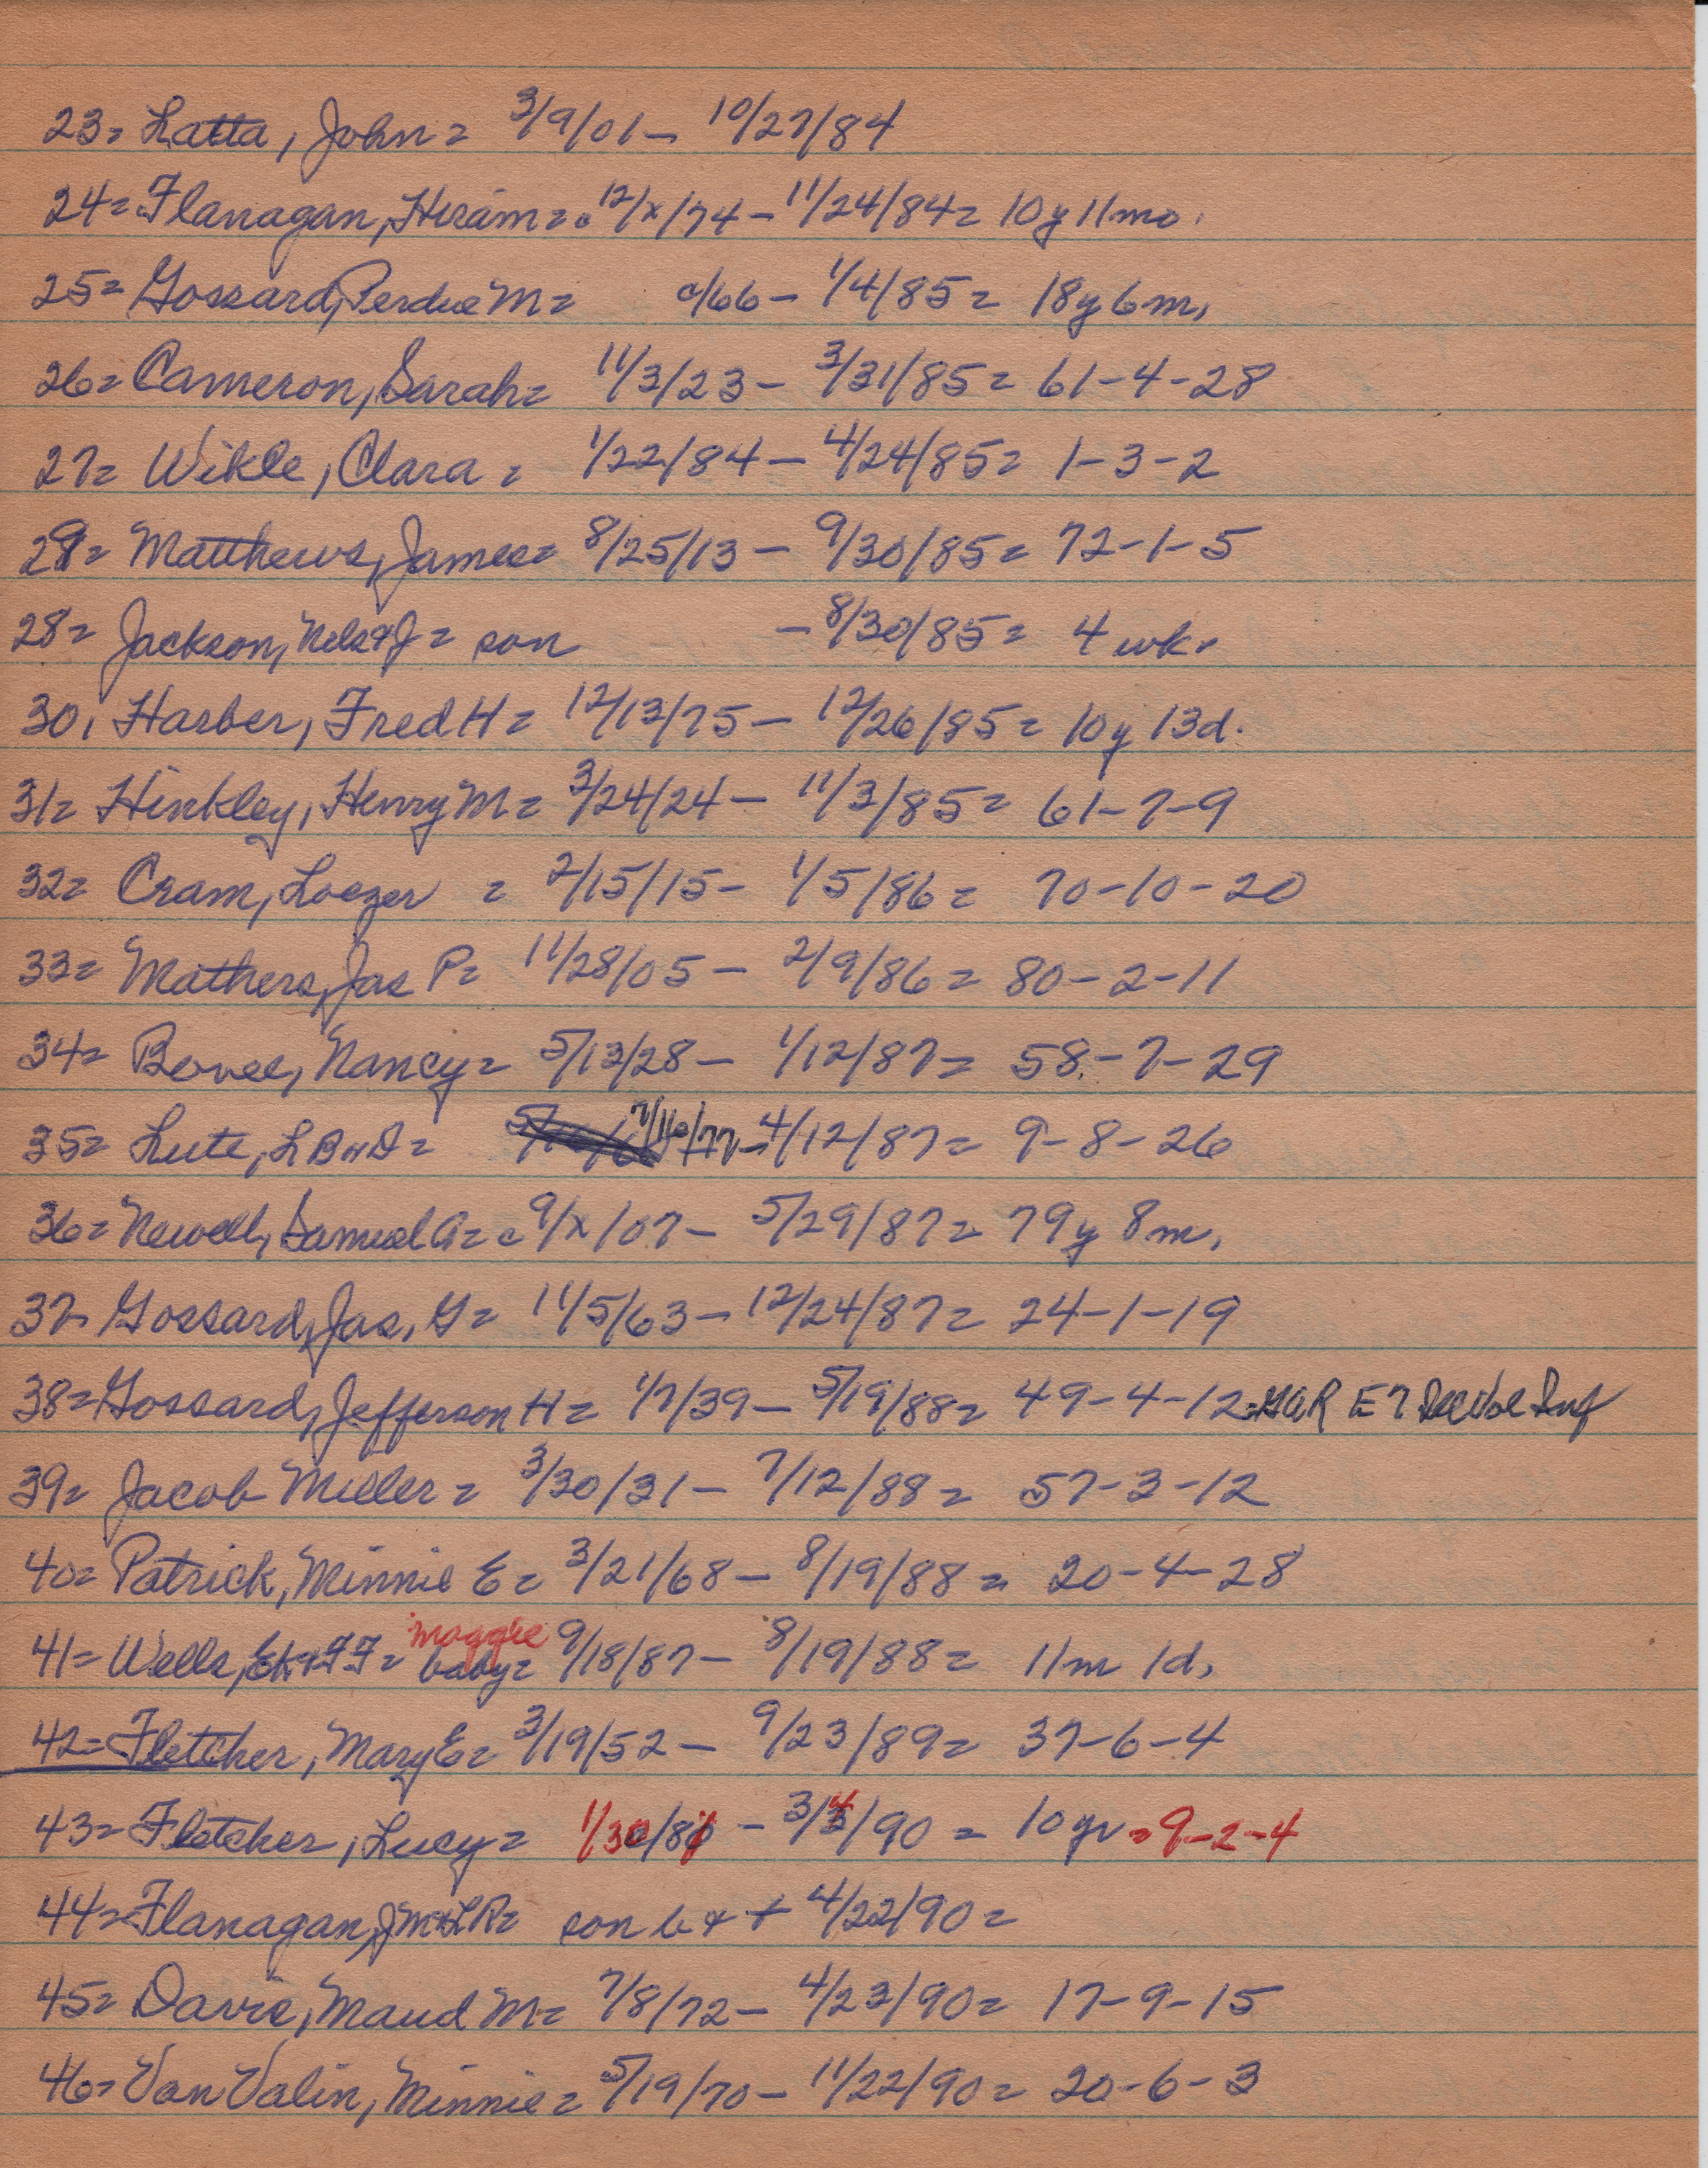 23= Latta, John = 3/9/01 - 10/27/84
24= Flanagan, Hiram = c 12/x/74 - 11/24/84 = 10y 11mo.
25= Gossard, Perdue M = c/66 - 1/4/85 = 18y 6m.
26= Cameron, Sarah = 11/3/23 - 3/31/85 = 61-4-28
27= Wikle, Clara = 1/22/84 - 4/24/85 = 1-3-2
29= Matthews, James = 8/25/13 - 9/30/85 = 72-1-5
28= Jackson, Nels & J = son - 8/30/85 = 4 wk.
30, Harber, Fred H = 12/13/75 - 12/26/85 = 10y 13d.
31= Hinkley, Henry M = 3/24/24 - 11/3/85 = 61-7-9
32= Cram, Loezer = 2/15/15 - 1/5/86 = 70-10-20
33= Mathers, Jas P = 11/28/05 - 2/9/86 = 80-2-11
34= Bovee, Nancy = 5/13/28 - 1/12/87 = 58-7-29
35= Lute, L B & D = 7/16/77 - 4/12/87 = 9-8-26
36= Newell, Samuel A = c 9/x/07 - 5/29/87 = 79y 8m.
37= Gossard, Jas. G = 11/5/63 - 12/24/87 = 24-1-19
38= Gossard, Jefferson H = 1/7/39 - 5/19/88 = 49-4-12 = GAR E 7 Inf
39= Jacob Miller = 3/30/31 - 7/12/88 = 57-3-12
40= Patrick, Minnie E = 3/21/68 - 8/19/88 = 20-4-28
41= Wells, = Maggie baby = 9/18/87 - 8/19/88 = 11m 1d.
42= Fletcher, Mary E = 3/19/52 - 9/23/89 = 37-6-4
43= Fletcher, Lucy = 1/30/81 - 3/4/90 = 10 yr = 9-2-4
44= Flanagan, J M & L R = son b & + 4/22/90 =
45= Davis, Maud M = 7/8/72 - 4/23/90 = 17-9-15
46= Van Valin, Minnie = 5/19/70 - 11/22/90 = 20-6-3